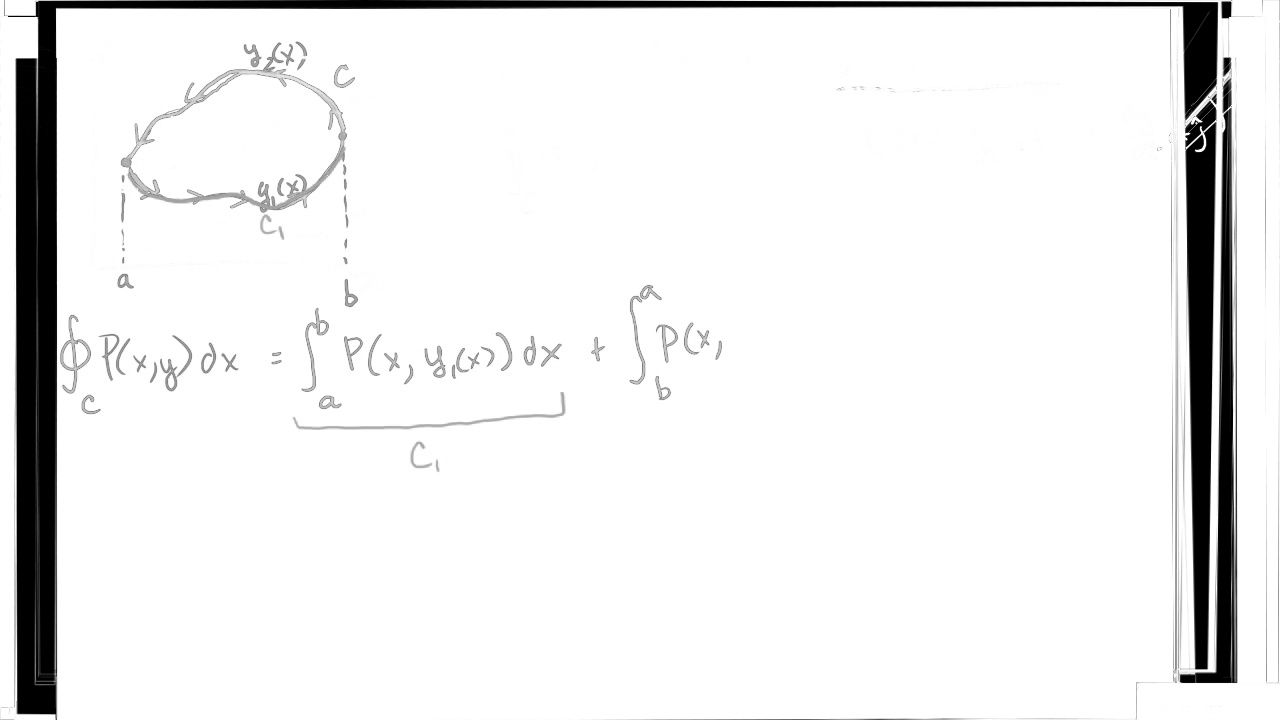 y₂(x)
C
y₁(x)
C₁
a
b
∮_C P(x,y) dx = ∫_a^b P(x, y₁(x)) dx + ∫_b^a P(x,
C₁